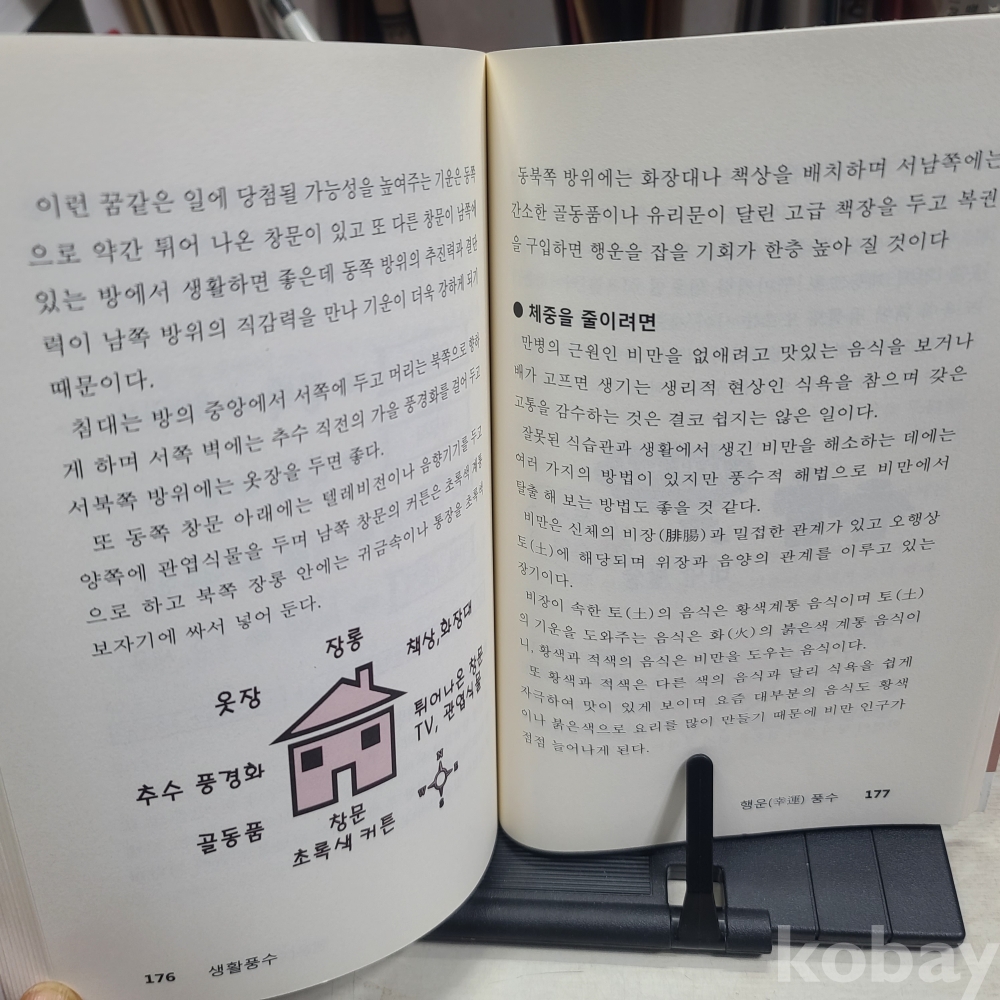 이런 꿈같은 일에 당첨될 가능성을 높여주는 기운은 동쪽
으로 약간 튀어 나온 창문이 있고 또 다른 창문이 남쪽에
있는 방에서 생활하면 좋은데 동쪽 방위의 추진력과 결단
력이 남쪽 방위의 직감력을 만나 기운이 더욱 강하게 되기
때문이다.
침대는 방의 중앙에서 서쪽에 두고 머리는 북쪽으로 향하
게 하며 서쪽 벽에는 추수 직전의 가을 풍경화를 걸어 두고
서북쪽 방위에는 옷장을 두면 좋다.
또 동쪽 창문 아래에는 텔레비젼이나 음향기기를 두고
양쪽에 관엽식물을 두며 남쪽 창문의 커튼은 초록색 계통
으로 하고 북쪽 장롱 안에는 귀금속이나 통장을 초록색
보자기에 싸서 넣어 둔다.
장롱
책상,화장대
옷장
튀어나온 창문
TV, 관엽식물
추수 풍경화
골동품
창문
초록색 커튼
N
W E
S
176 생활풍수
동북쪽 방위에는 화장대나 책상을 배치하며 서남쪽에는
간소한 골동품이나 유리문이 달린 고급 책장을 두고 복권
을 구입하면 행운을 잡을 기회가 한층 높아 질 것이다
● 체중을 줄이려면
만병의 근원인 비만을 없애려고 맛있는 음식을 보거나
배가 고프면 생기는 생리적 현상인 식욕을 참으며 갖은
고통을 감수하는 것은 결코 쉽지는 않은 일이다.
잘못된 식습관과 생활에서 생긴 비만을 해소하는 데에는
여러 가지의 방법이 있지만 풍수적 해법으로 비만에서
탈출 해 보는 방법도 좋을 것 같다.
비만은 신체의 비장(腓腸)과 밀접한 관계가 있고 오행상
토(土)에 해당되며 위장과 음양의 관계를 이루고 있는
장기이다.
비장이 속한 토(土)의 음식은 황색계통 음식이며 토(土)
의 기운을 도와주는 음식은 화(火)의 붉은색 계통 음식이
니, 황색과 적색의 음식은 비만을 도우는 음식이다.
또 황색과 적색은 다른 색의 음식과 달리 식욕을 쉽게
자극하여 맛이 있게 보이며 요즘 대부분의 음식도 황색
이나 붉은색으로 요리를 많이 만들기 때문에 비만 인구가
점점 늘어나게 된다.
행운(幸運) 풍수 177
kobay